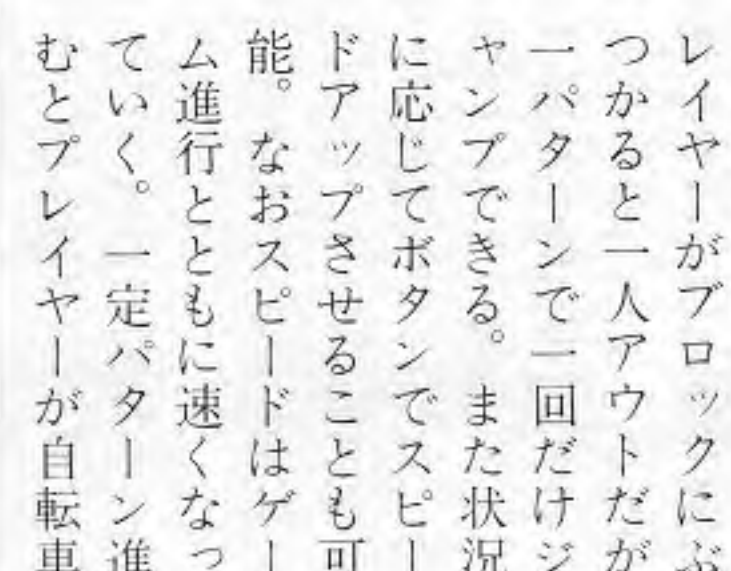 レイヤーがブロックにぶ
つかると一人アウトだが
一パターンで一回だけジ
ャンプできる。また状況
に応じてボタンでスピー
ドアップさせることも可
能。なおスピードはゲー
ム進行とともに速くなっ
ていく。一定パターン進
むとプレイヤーが自転車